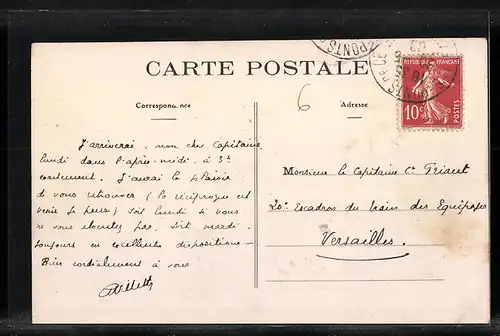 CARTE POSTALE
Correspondance
Adresse
6
REPUBLIQUE FRANÇAISE
10c
POSTES
J'arriverai mon cher Capitaine
lundi dans l'après-midi à 3h
J'aurai le plaisir
de vous retrouver (la réciproque est
vraie je pense) soit lundi si vous
ne vous absentez pas, soit mardi.
toujours en excellentes dispositions —
Bien cordialement à vous
Monsieur le Capitaine Ct Friant
20e Escadron du train des Equipages
Versailles.